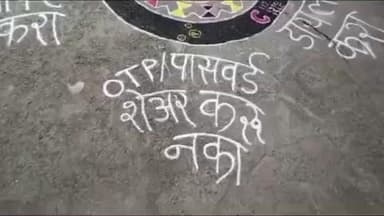 करा
OTP/पासवर्ड
शेअर करू
नका